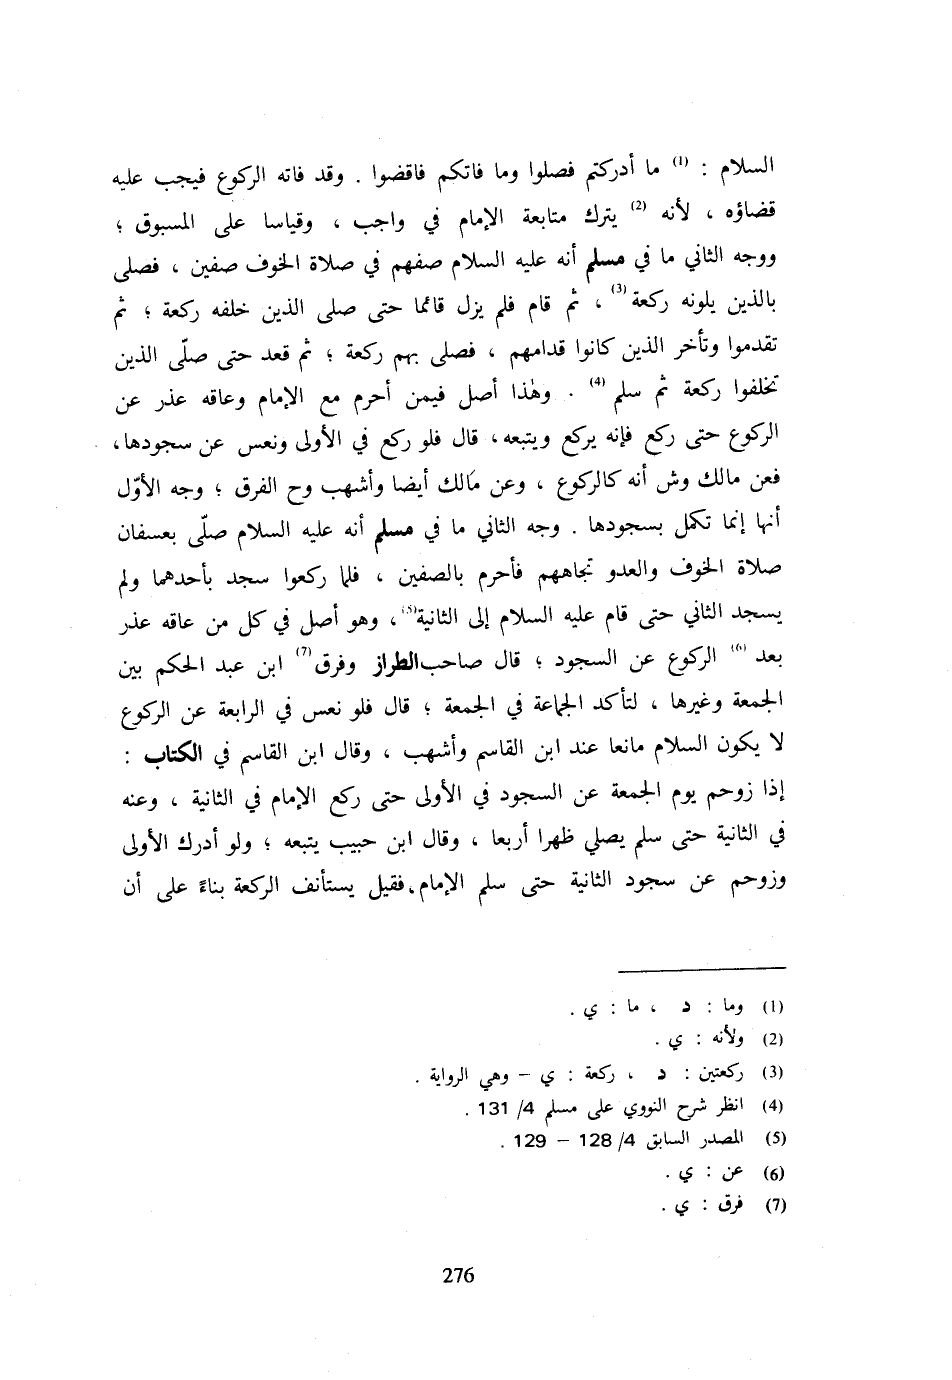 السلام : (1) ما أدركتم فصلوا وما فاتكم فاقضوا . وقد فاته الركوع فيجب عليه
قضاؤه ، لأنه (2) يترك متابعة الإمام في واجب ، وقياسا على المسبوق ؛
ووجه الثاني ما في مسلم أنه عليه السلام صفهم في صلاة الخوف صفين ، فصلى
بالذين يلونه ركعة (3) ، ثم قام فلم يزل قائما حتى صلى الذين خلفه ركعة ؛ ثم
تقدموا وتأخر الذين كانوا قدامهم ، فصلى بهم ركعة ؛ ثم قعد حتى صلّى الذين
تخلفوا ركعة ثم سلم (4) . وهٰذا أصل فيمن أحرم مع الإمام وعاقه عذر عن
الركوع حتى ركع فإنه يركع ويتبعه، قال فلو ركع في الأولى ونعس عن سجودها،
فعن مالك وش أنه كالركوع ، وعن مالك أيضا وأشهب وح الفرق ؛ وجه الأوّل
أنها إنما تكمل بسجودها . وجه الثاني ما في مسلم أنه عليه السلام صلّى بعسفان
صلاة الخوف والعدو تجاههم فأحرم بالصفين ، فلما ركعوا سجد بأحدهما ولم
يسجد الثاني حتى قام عليه السلام إلى الثانية (5) ، وهو أصل في كل من عاقه عذر
بعد (6) الركوع عن السجود ؛ قال صاحب الطراز وفرق (7) ابن عبد الحكم بين
الجمعة وغيرها ، لتأكد الجماعة في الجمعة ؛ قال فلو نعس في الرابعة عن الركوع
لا يكون السلام مانعا عند ابن القاسم وأشهب ، وقال ابن القاسم في الكتاب :
إذا زوحم يوم الجمعة عن السجود في الأولى حتى ركع الإمام في الثانية ، وعنه
في الثانية حتى سلم يصلي ظهرا أربعا ، وقال ابن حبيب يتبعه ؛ ولو أدرك الأولى
وزوحم عن سجود الثانية حتى سلم الإمام، فقيل يستأنف الركعة بناءً على أن
(1) وما : د ، ما : ي .
(2) ولأنه : ي .
(3) ركعتين : د ، ركعة : ي – وهي الرواية .
(4) انظر شرح النووي على مسلم 4/ 131 .
(5) المصدر السابق 4/ 128 – 129 .
(6) عن : ي .
(7) فرق : ي .
276